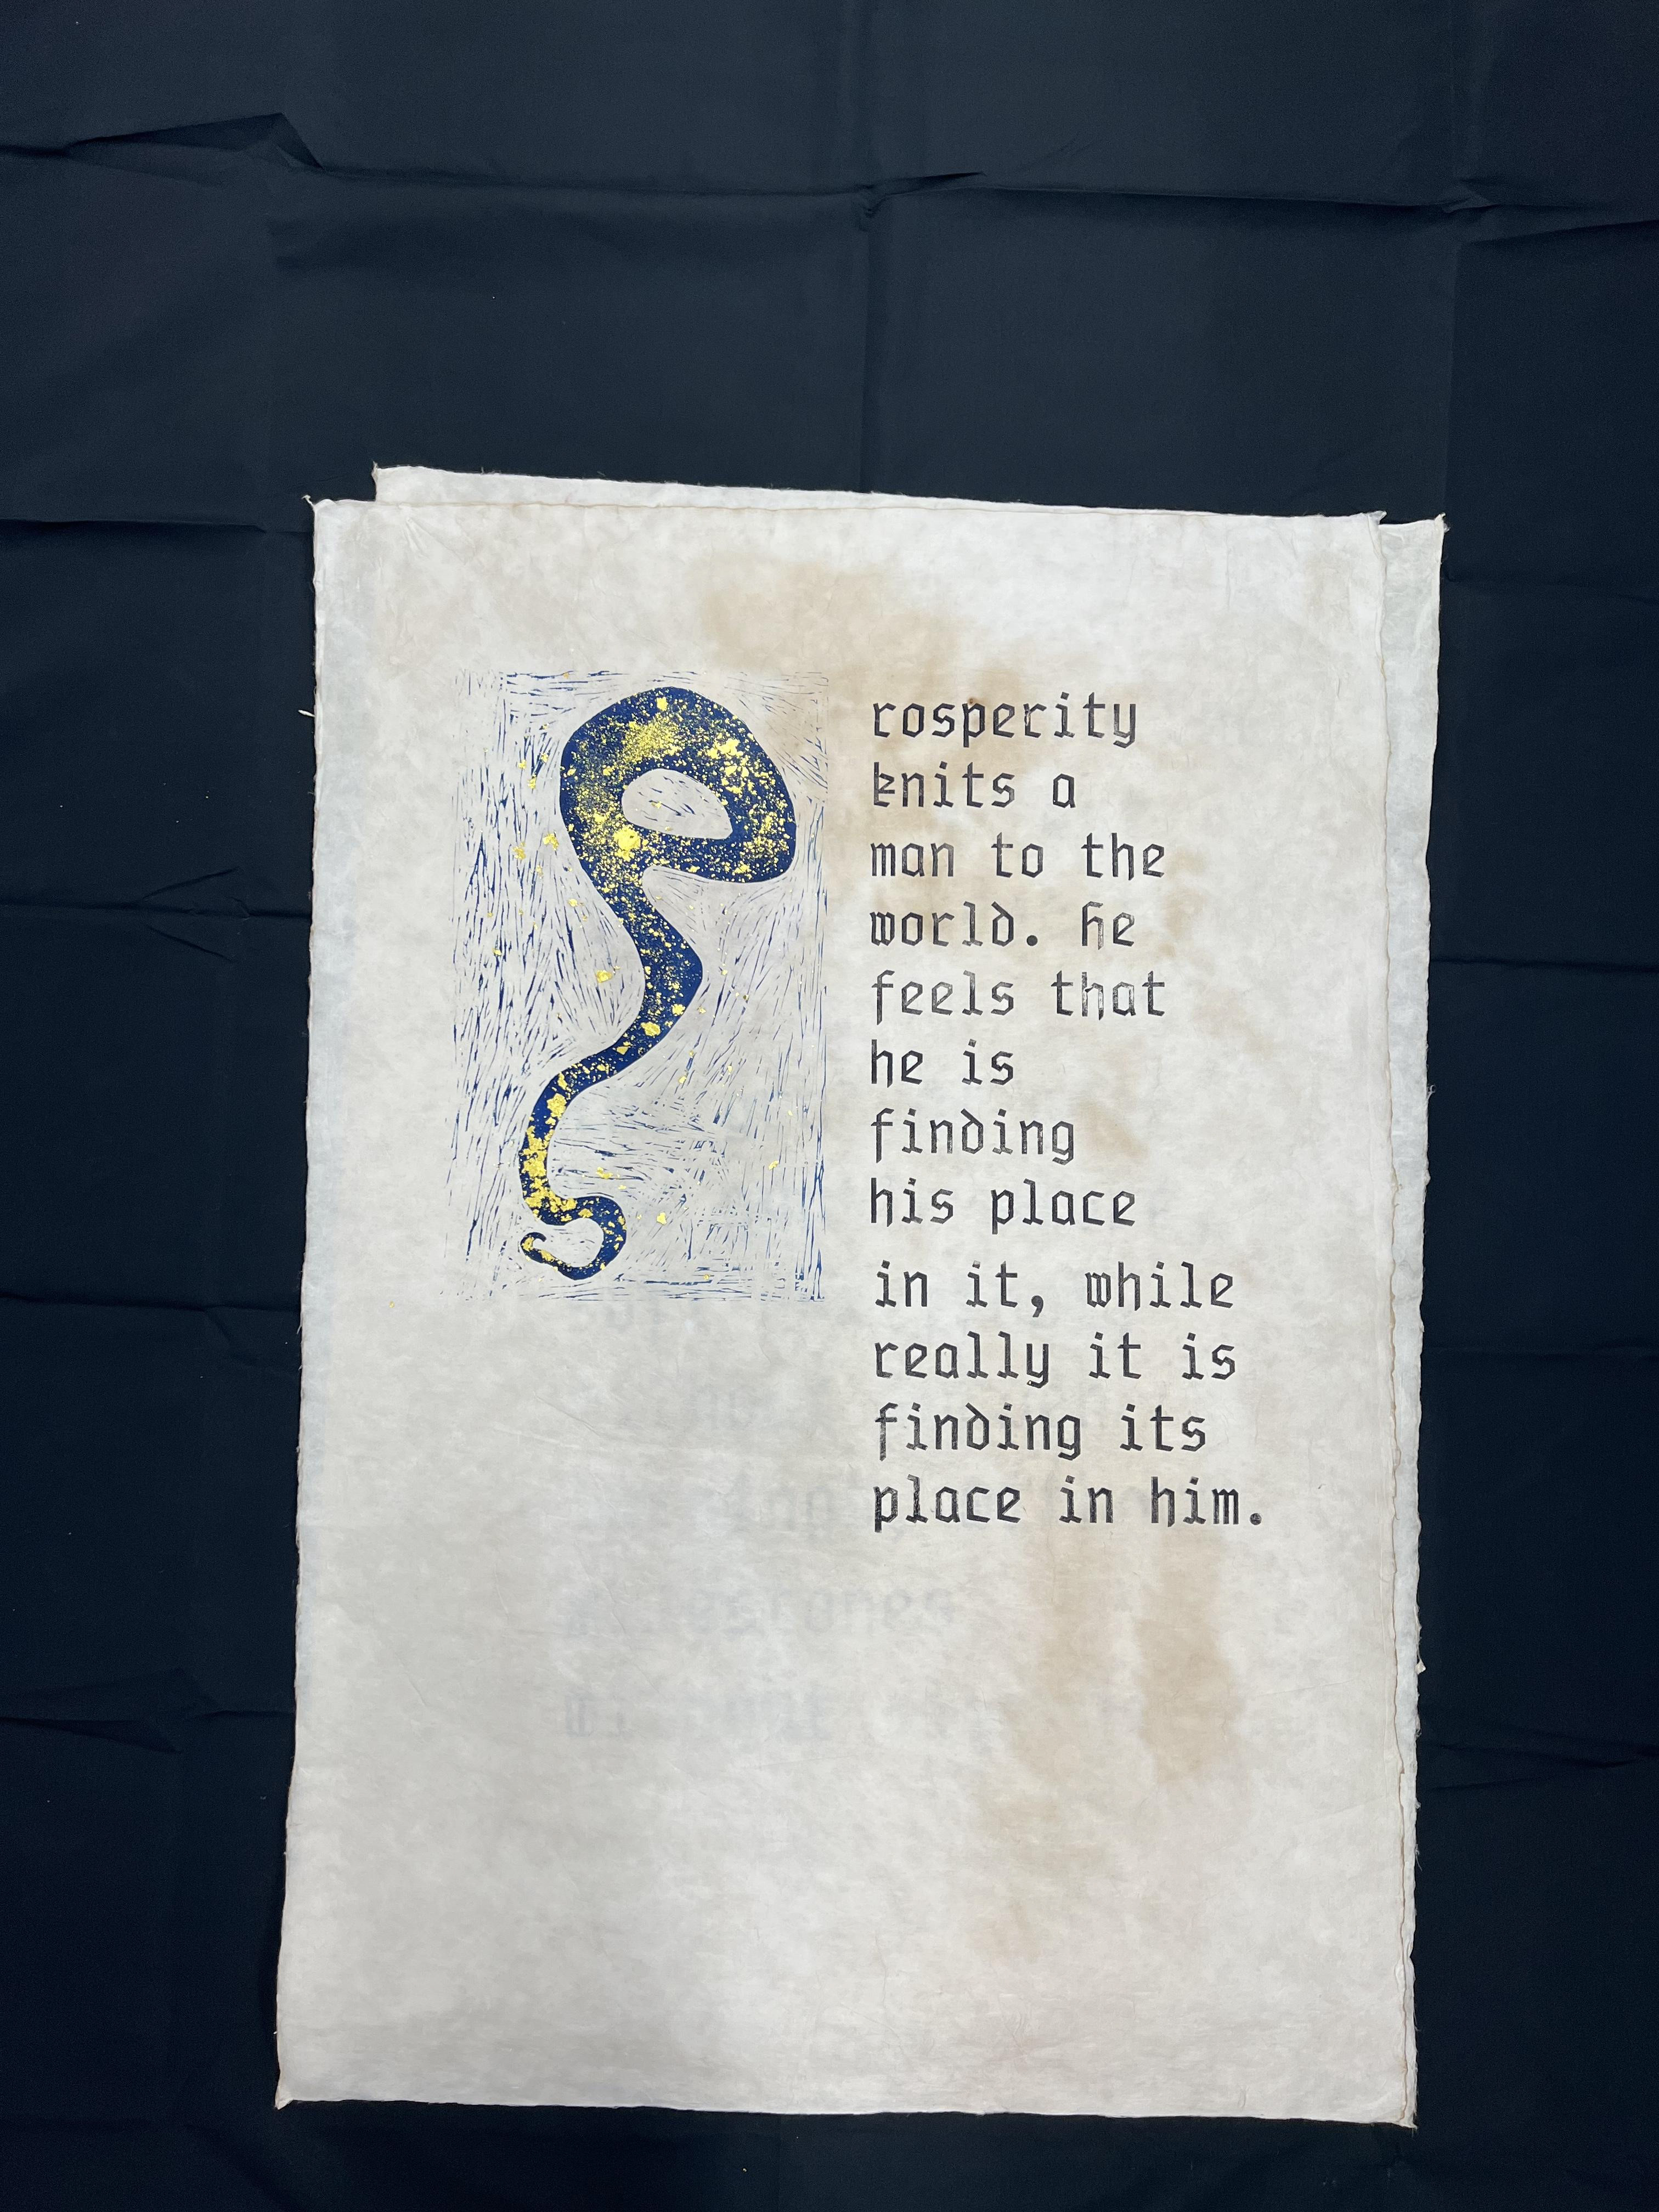 Prosperity
knits a
man to the
world. he
feels that
he is
finding
his place
in it, while
really it is
finding its
place in him.